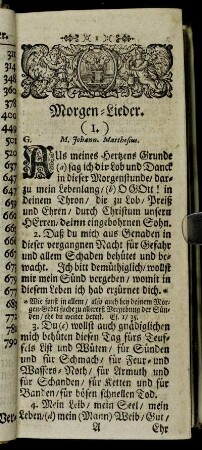 Morgen-Lieder.
( 1. )
G. M. Johann. Matthesius.
AUs meines Hertzens Grunde
(a) sag ich dir Lob und Danck
in dieser Morgenstunde/ dar-
zu mein Lebenlang/ (b) O GOtt! in
deinem Thron/ dir zu Lob/ Preiß
und Ehren/ durch Christum unsern
HErren/ deinn eingebohrnen Sohn.
2. Daß du mich aus Genaden in
dieser vergangnen Nacht für Gefahr
und allem Schaden behütet und be-
wacht. Ich bitt demüthiglich/ wollst
mir mein Sünd vergeben/ womit in
diesem Leben ich hab erzürnet dich. *
* Wie sonst in allem/ also auch bey deinem Mor-
gen-Gebet suche zu allererst Vergebung der Sün-
den/ ehe du weiter betest. Es. 1/ 15.
3. Du (c) wollst auch gnädiglichen
mich behüten diesen Tag fürs Teuf-
fels List und Wüten/ für Sünden
und für Schmach/ für Feur- und
Wassers-Noth/ für Armuth und
für Schanden/ für Ketten und für
Banden/ für bösen schnellen Tod.
4. Mein Leib/ mein Seel/ mein
Leben/ (d) mein (Mann) Weib/ Gut/
A Ehr